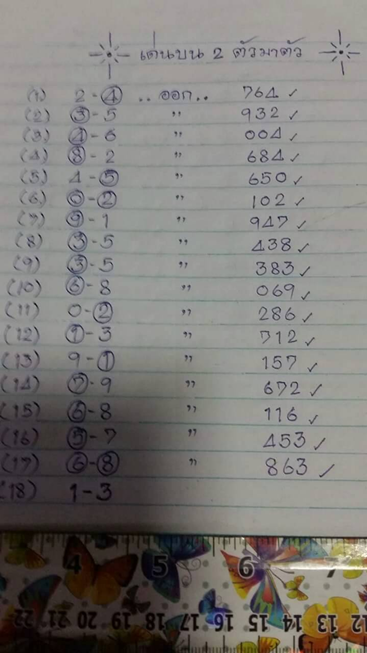 เด่นบน 2 ตัวมาตัว
(1) 2-4 ..ออก.. 764 ✓
(2) 3-5 " 932 ✓
(3) 4-6 " 004 ✓
(4) 8-2 " 684 ✓
(5) 4-5 " 650 ✓
(6) 0-2 " 102 ✓
(7) 9-1 " 947 ✓
(8) 3-5 " 438 ✓
(9) 3-5 " 383 ✓
(10) 6-8 " 069 ✓
(11) 0-2 " 286 ✓
(12) 1-3 " 712 ✓
(13) 9-1 " 157 ✓
(14) 7-9 " 672 ✓
(15) 6-8 " 116 ✓
(16) 5-7 " 453 ✓
(17) 6-8 " 863 ✓
(18) 1-3
4 5 6
22 21 20 19 18 17 16 15 14 13 12